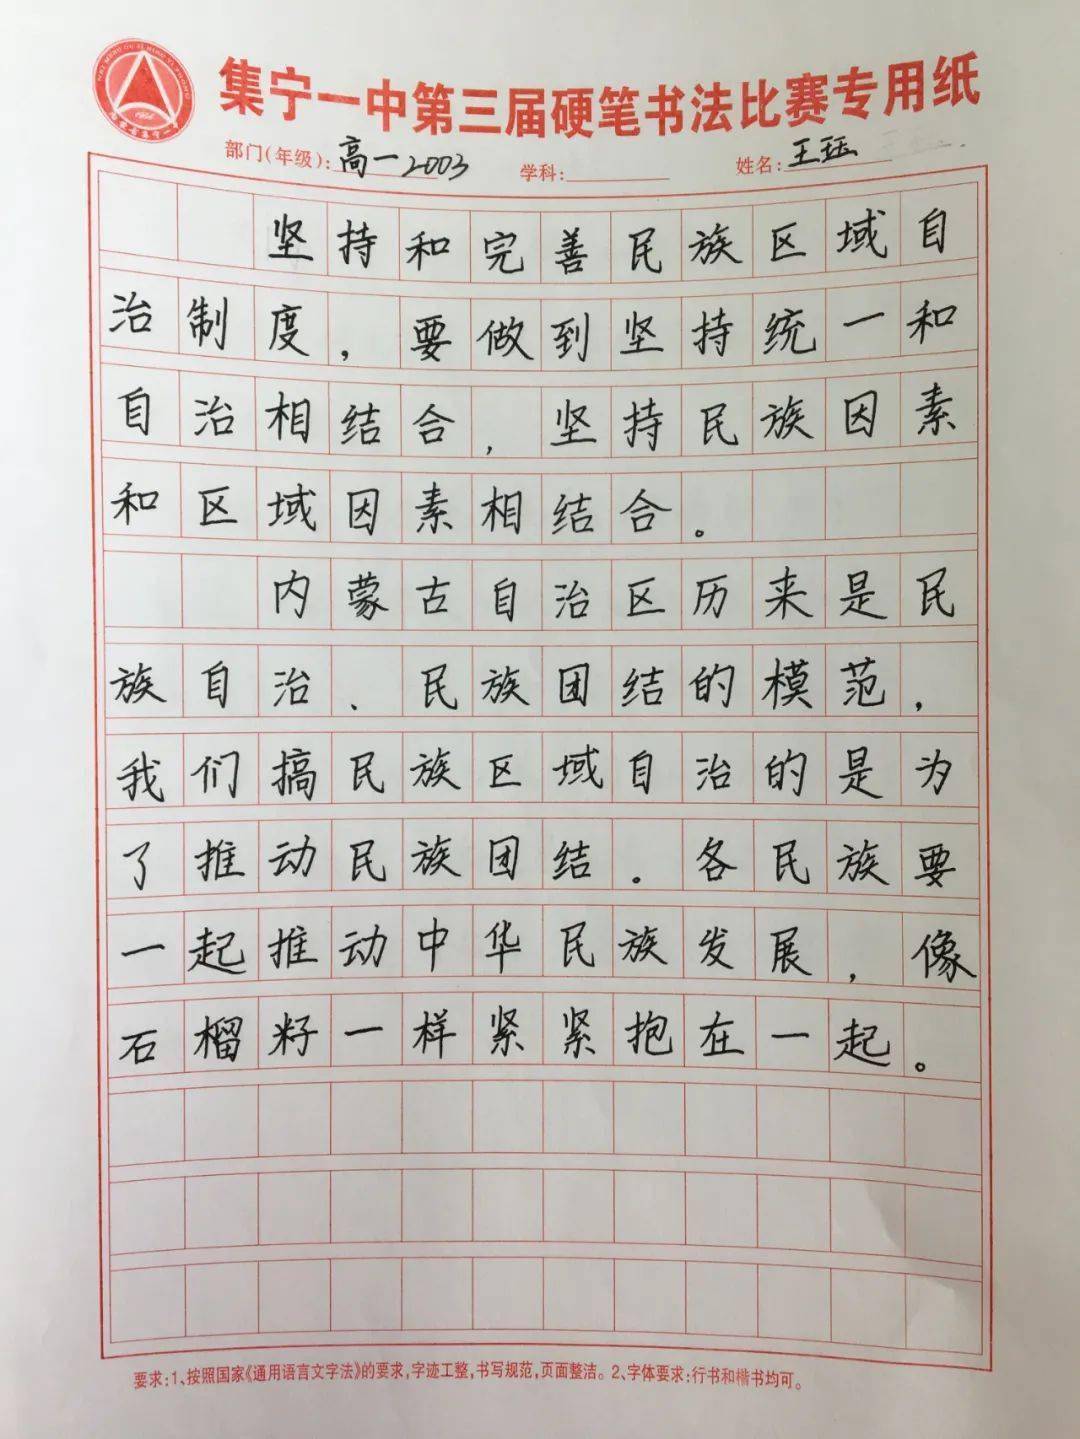 集宁一中第三届硬笔书法比赛专用纸
部门(年级):高一2003 学科: 姓名:王珏
坚持和完善民族区域自
治制度,要做到坚持统一和
自治相结合,坚持民族因素
和区域因素相结合。
内蒙古自治区历来是民
族自治、民族团结的模范,
我们搞民族区域自治的是为
了推动民族团结.各民族要
一起推动中华民族发展,像
石榴籽一样紧紧抱在一起。
要求:1、按照国家《通用语言文字法》的要求,字迹工整,书写规范,页面整洁。2、字体要求:行书和楷书均可。